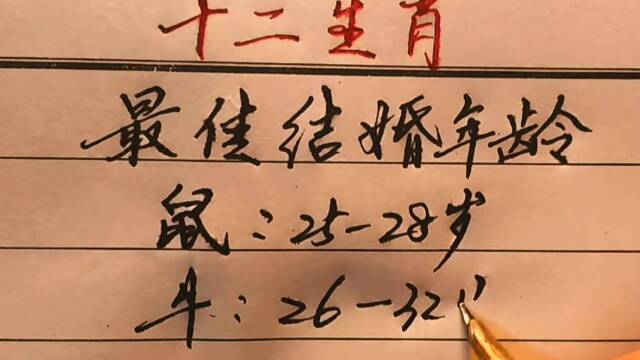 十二生肖
最佳结婚年龄
鼠：25-28岁
牛：26-32